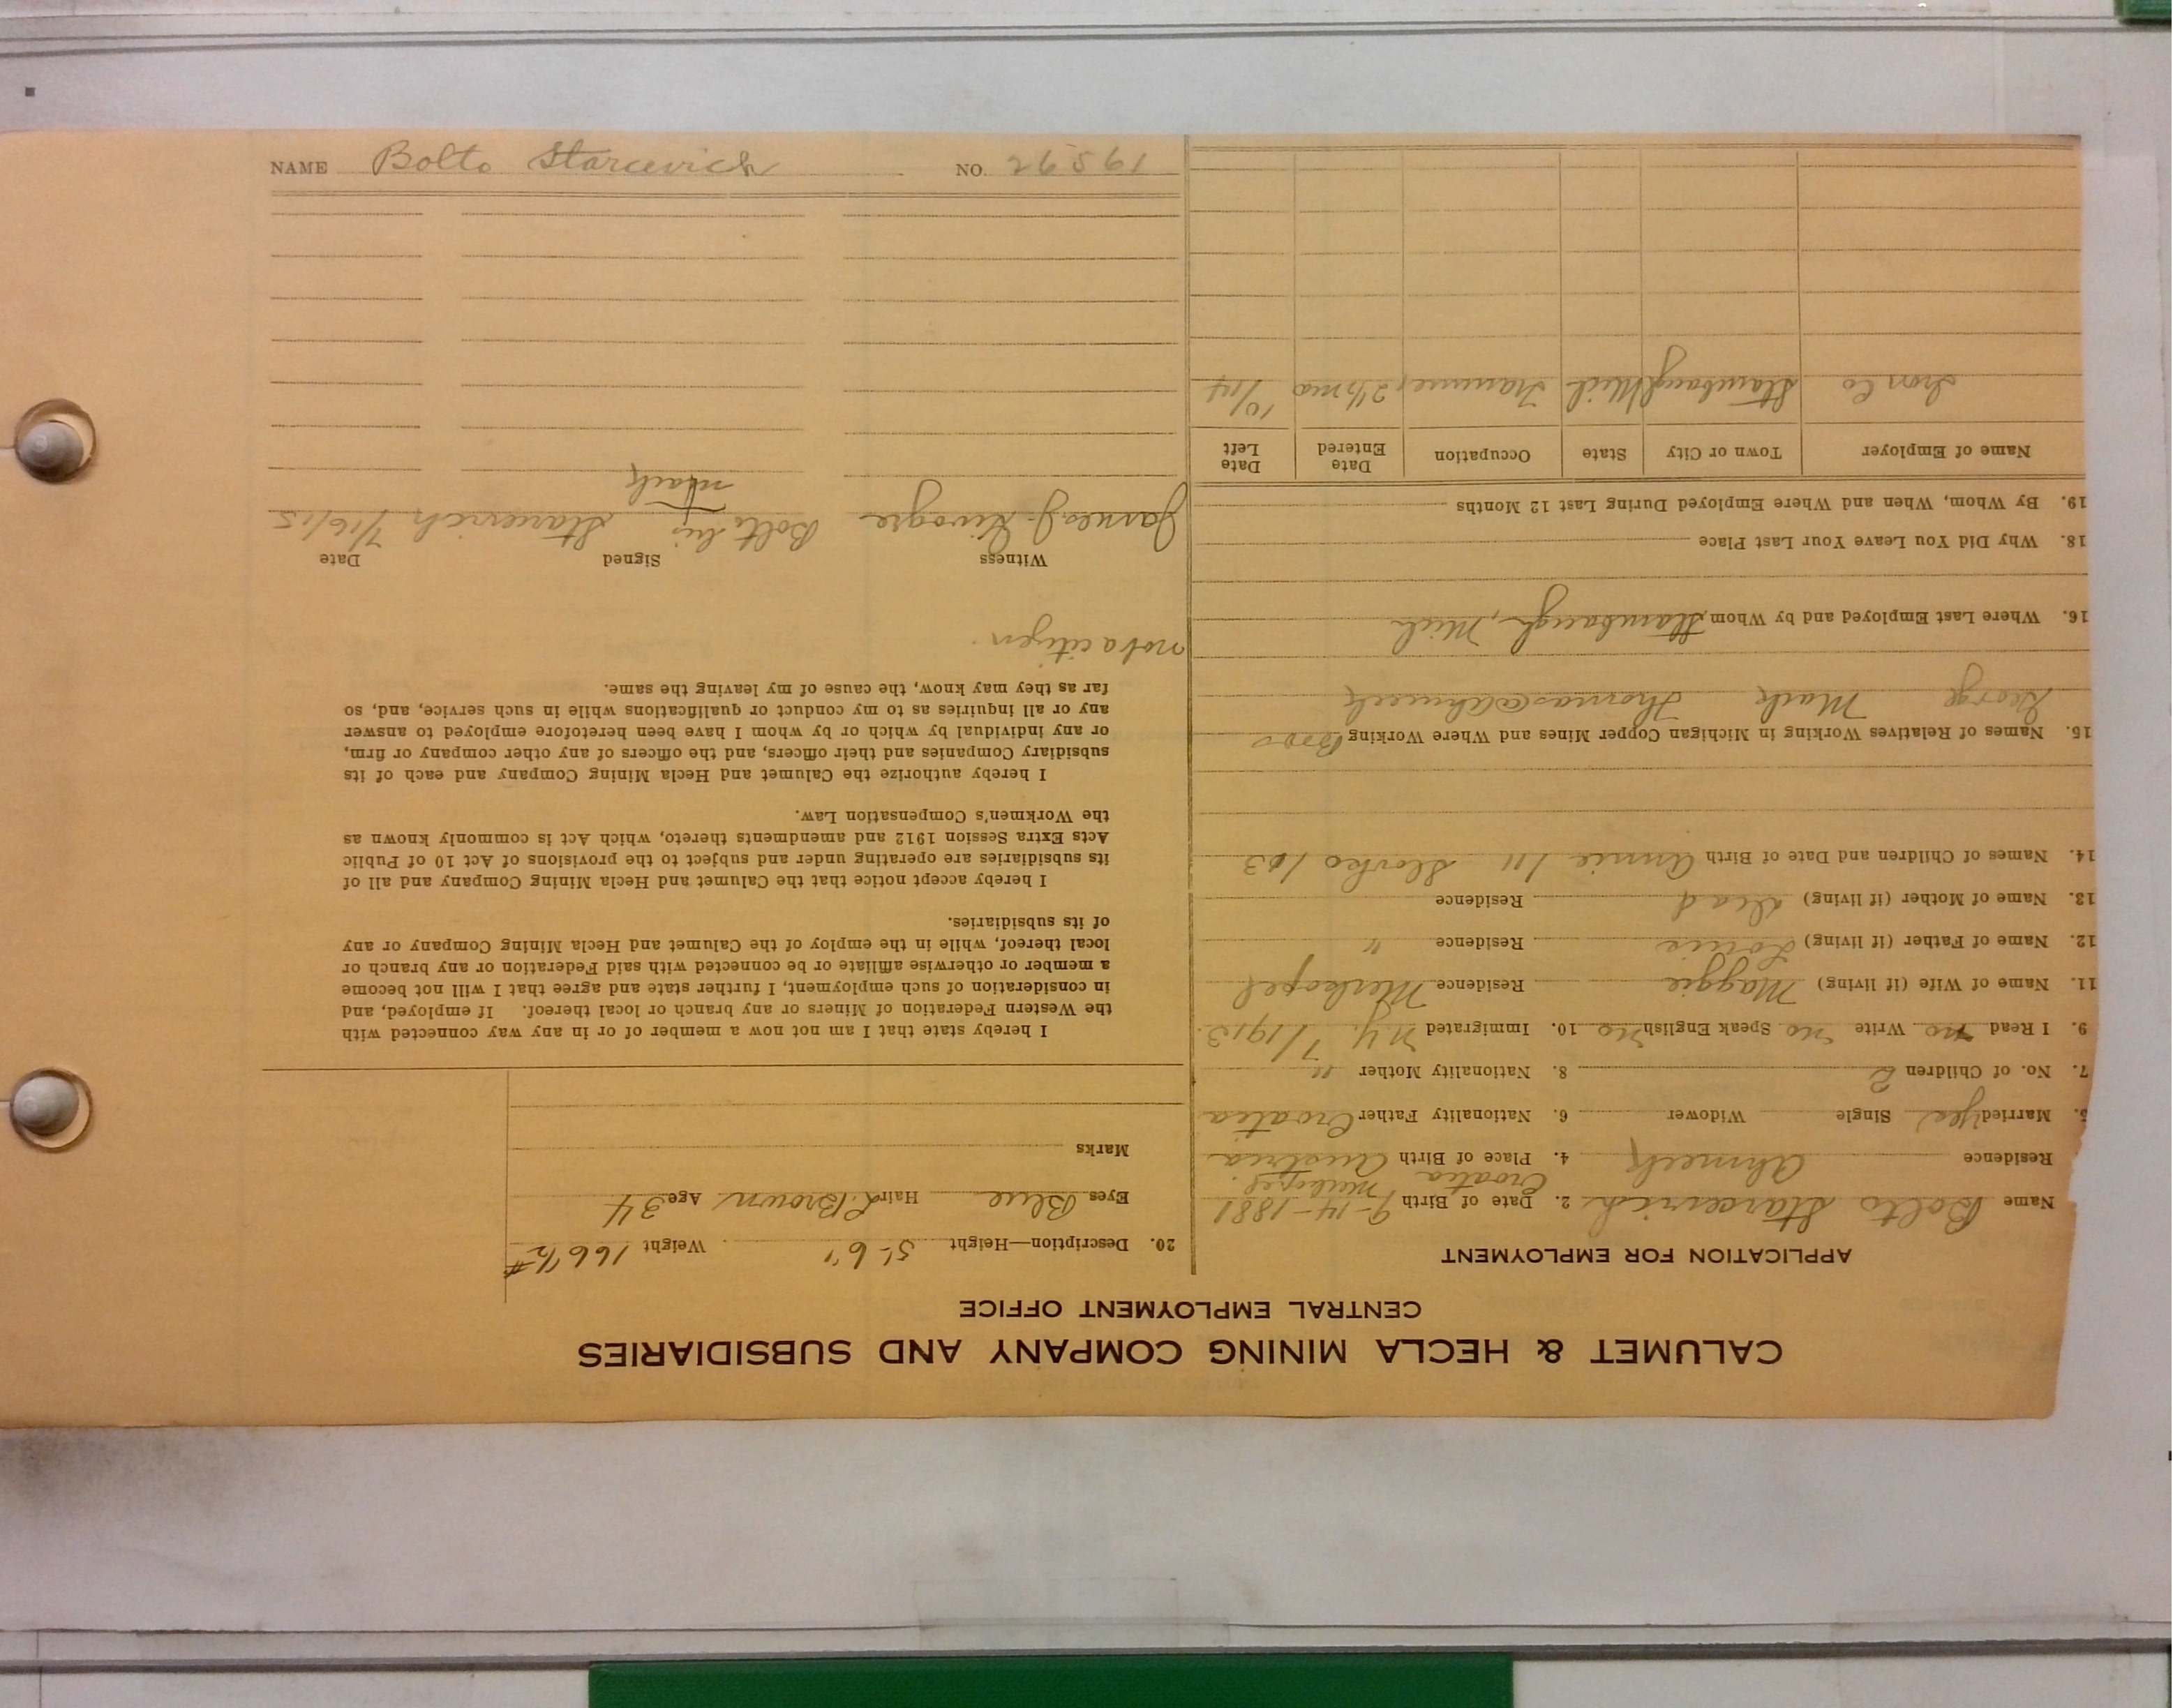 NAME Bolto Starcevich NO. 26561
CALUMET & HECLA MINING COMPANY AND SUBSIDIARIES
CENTRAL EMPLOYMENT OFFICE
APPLICATION FOR EMPLOYMENT
Name Bolto Starcevich 2. Date of Birth 9-14-1881
Croatia
Residence Ahmeek 4. Place of Birth Austria
5. Married Yes Single Widower 6. Nationality Father Croatia
7. No. of Children 2 8. Nationality Mother "
9. I Read no Write no Speak English no 10. Immigrated N.Y. 7/1913.
11. Name of Wife (if living) Maggie Residence Merkopel
12. Name of Father (if living) Louis Residence "
13. Name of Mother (if living) dead Residence
14. Names of Children and Date of Birth Annie 1/11 Slovko 1/03
15. Names of Relatives Working in Michigan Copper Mines and Where Working Bros
George Mark Thomas @ Ahmeek
16. Where Last Employed and by Whom Stambaugh, Mich
18. Why Did You Leave Your Last Place
19. By Whom, When and Where Employed During Last 12 Months
Name of Employer Town or City State Occupation Date Entered Date Left
Iron Co Stambaugh Mich Trammer 2½ mo 10/14
20. Description—Height 5'-6" Weight 166½#
Eyes Blue Hair L Brown Age 34
Marks
I hereby state that I am not now a member of or in any way connected with
the Western Federation of Miners or any branch or local thereof. If employed, and
in consideration of such employment, I further state and agree that I will not become
a member or otherwise affiliate or be connected with said Federation or any branch or
local thereof, while in the employ of the Calumet and Hecla Mining Company or any
of its subsidiaries.
I hereby accept notice that the Calumet and Hecla Mining Company and all of
its subsidiaries are operating under and subject to the provisions of Act 10 of Public
Acts Extra Session 1912 and amendments thereto, which Act is commonly known as
the Workmen's Compensation Law.
I hereby authorize the Calumet and Hecla Mining Company and each of its
subsidiary Companies and their officers, and the officers of any other company or firm,
or any individual by which or by whom I have been heretofore employed to answer
any or all inquiries as to my conduct or qualifications while in such service, and, so
far as they may know, the cause of my leaving the same.
not a citizen.
Witness Signed Date
James J. Bolto his Starcevich 7/16/15
mark